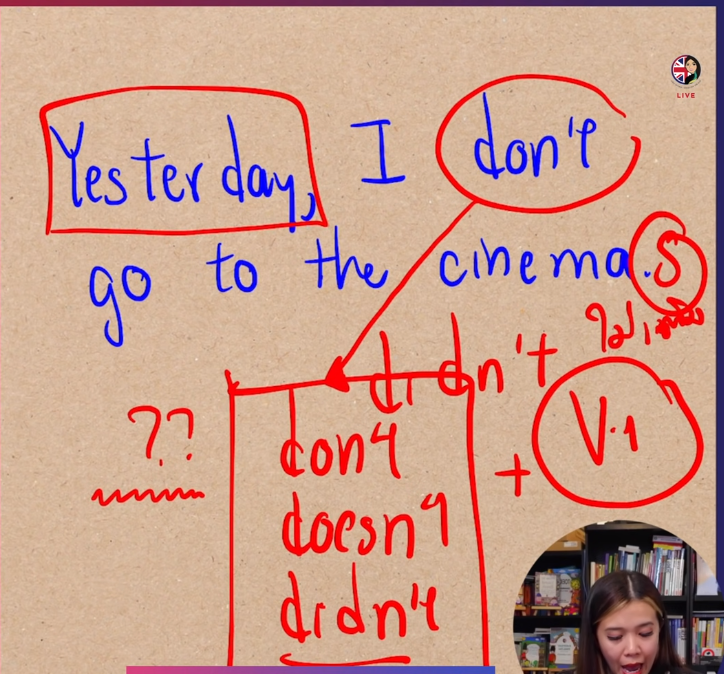 LIVE
Yesterday, I don't
go to the cinema. S
didn't
?? don't
+ V.1
doesn't
didn't